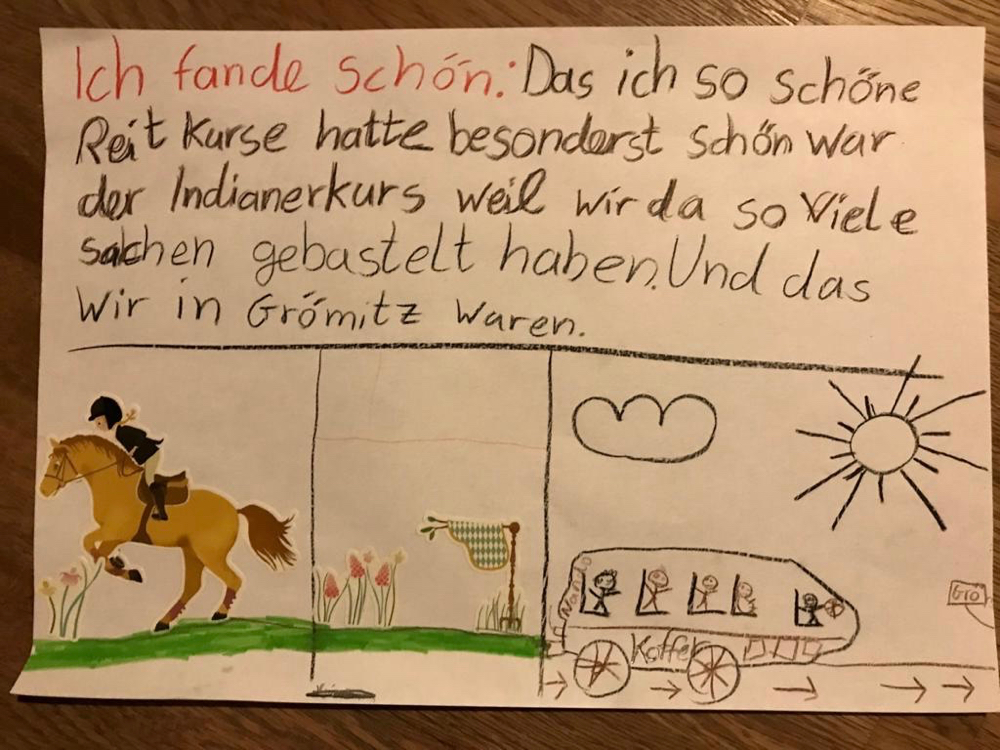 Ich fande schön: Das ich so schöne
Reit Kurse hatte besonderst schön war
der Indianerkurs weil wir da so Viele
sachen gebastelt haben. Und das
Wir in Grömitz waren.
Koffer
Grö